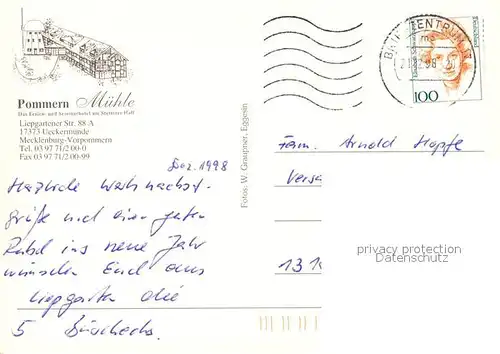 Pommern Mühle
Das Ferien- und Seminarhotel am Stettiner Haff
Liepgartener Str. 88 A
17373 Ueckermünde
Mecklenburg-Vorpommern
Tel. 03 97 71/2 00-0
Fax 03 97 71/2 00-99
Dez. 1998
Herzliche Weihnachts-
grüße und einen guten
Rutsch ins neue Jahr
wünschen Euch aus
Liepgarten die
5
Fotos: W. Graupner, Eggesin
ZENTRUM
100
Fam. Arnold Hopfe
Versa
131
privacy protection
Datenschutz